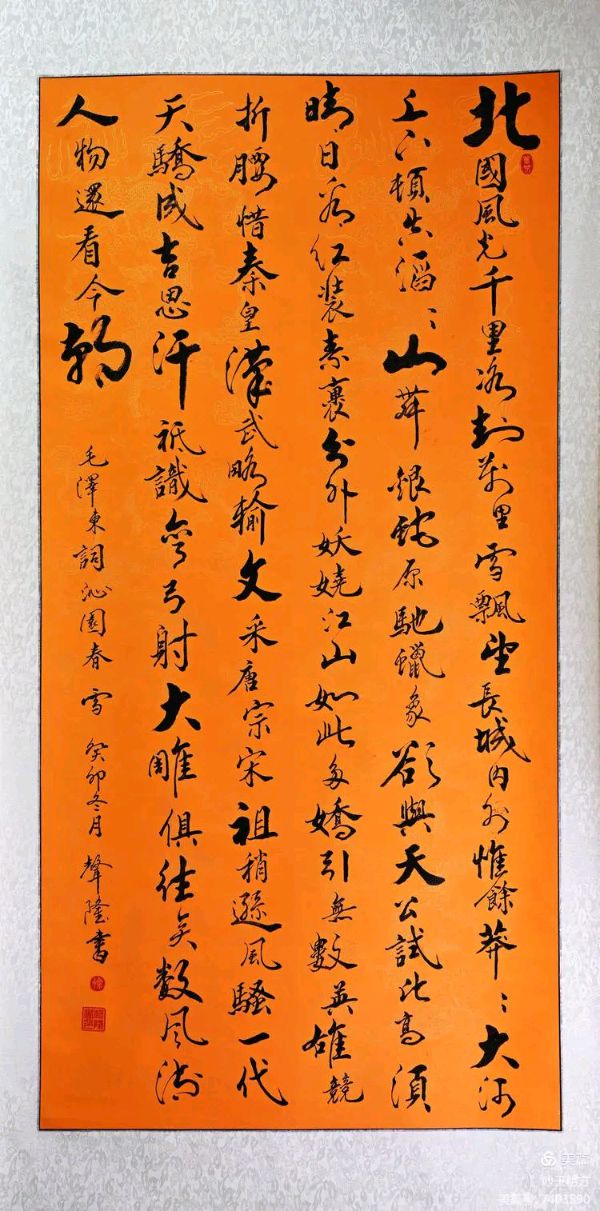 北國風光千里冰封萬里雪飄望長城內外惟餘莽〻大河
上下頓失滔〻山舞銀蛇原馳蠟象欲與天公試比高須
晴日看紅裝素裹分外妖嬈江山如此多嬌引無數英雄競
折腰惜秦皇漢武略輸文采唐宗宋祖稍遜風騷一代
天驕成吉思汗祗識彎弓射大雕俱往矣數風流
人物還看今朝
毛澤東詞沁園春雪 癸卯冬月 聲隆書
美篇